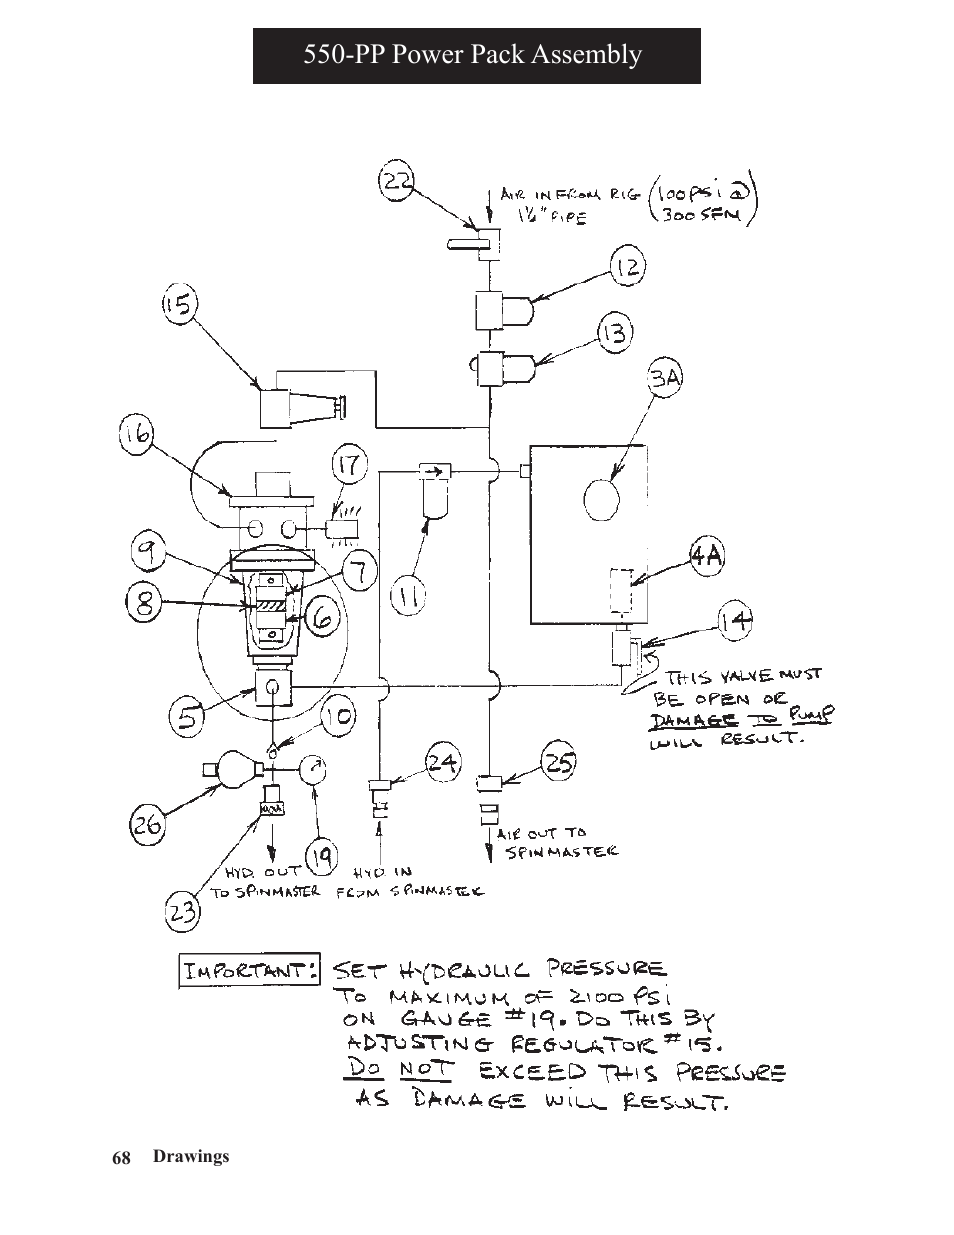 550-PP Power Pack Assembly
22
AIR IN FROM RIG (100 PSI @
1½" PIPE 300 SFM)
12
15
13
3A
16
17
9
7
4A
8
11
6
14
THIS VALVE MUST
BE OPEN OR
DAMAGE TO PUMP
WILL RESULT.
5
10
24
25
26
19
AIR OUT TO
SPINMASTER
HYD. OUT
TO SPINMASTER
HYD. IN
FROM SPINMASTER
23
IMPORTANT: SET HYDRAULIC PRESSURE
TO MAXIMUM OF 2100 PSI
ON GAUGE #19. DO THIS BY
ADJUSTING REGULATOR #15.
DO NOT EXCEED THIS PRESSURE
AS DAMAGE WILL RESULT.
68 Drawings